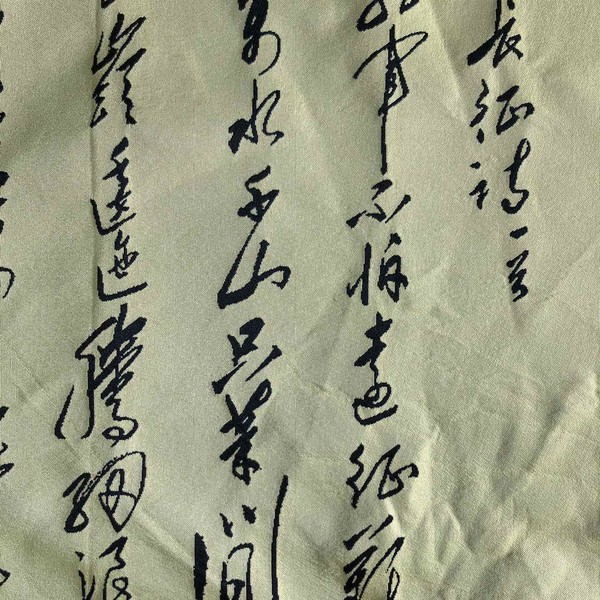 長征詩一首
軍不怕遠征難
萬水千山只等閒
嶺逶迤騰細浪